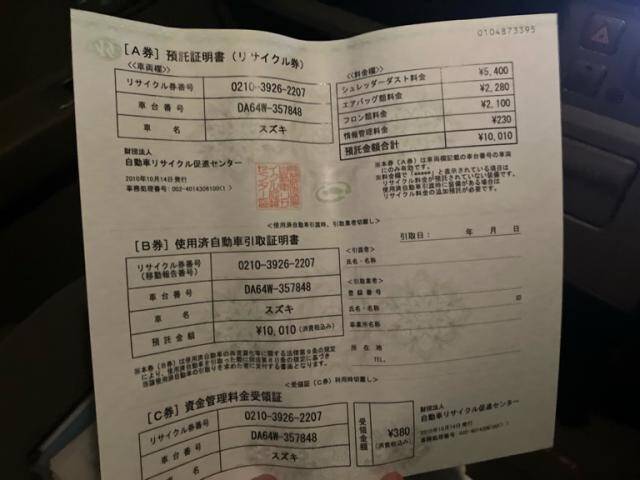 0104873395
[A券] 預託証明書 (リサイクル券)
<<車両欄>>
リサイクル券番号 0210-3926-2207
車台番号 DA64W-357848
車名 スズキ
財団法人
自動車リサイクル促進センター
2010年10月14日発行
<<料金欄>>
シュレッダーダスト料金 ¥5,400
エアバッグ類料金 ¥2,280
フロン類料金 ¥2,100
情報管理料金 ¥230
預託金額合計 ¥10,010
※本券(A券)は車両欄記載の車台番号の車両
にのみ有効です。
<使用済自動車引渡時、引取業者切離し>
[B券] 使用済自動車引取証明書
引取日: 年 月 日
リサイクル券番号
(移動報告番号) 0210-3926-2207
車台番号 DA64W-357848
車名 スズキ
預託金額 ¥10,010 (消費税込み)
<引渡者>
氏名・名称
<引取業者>
登録番号
氏名・名称
事業所名
所在地
TEL.
<受領証(C券)利用時切離し>
[C券] 資金管理料金受領証
リサイクル券番号 0210-3926-2207
車台番号 DA64W-357848
車名 スズキ
受領金額 ¥380
(消費税込み)
財団法人
自動車リサイクル促進センター
2010年10月14日発行